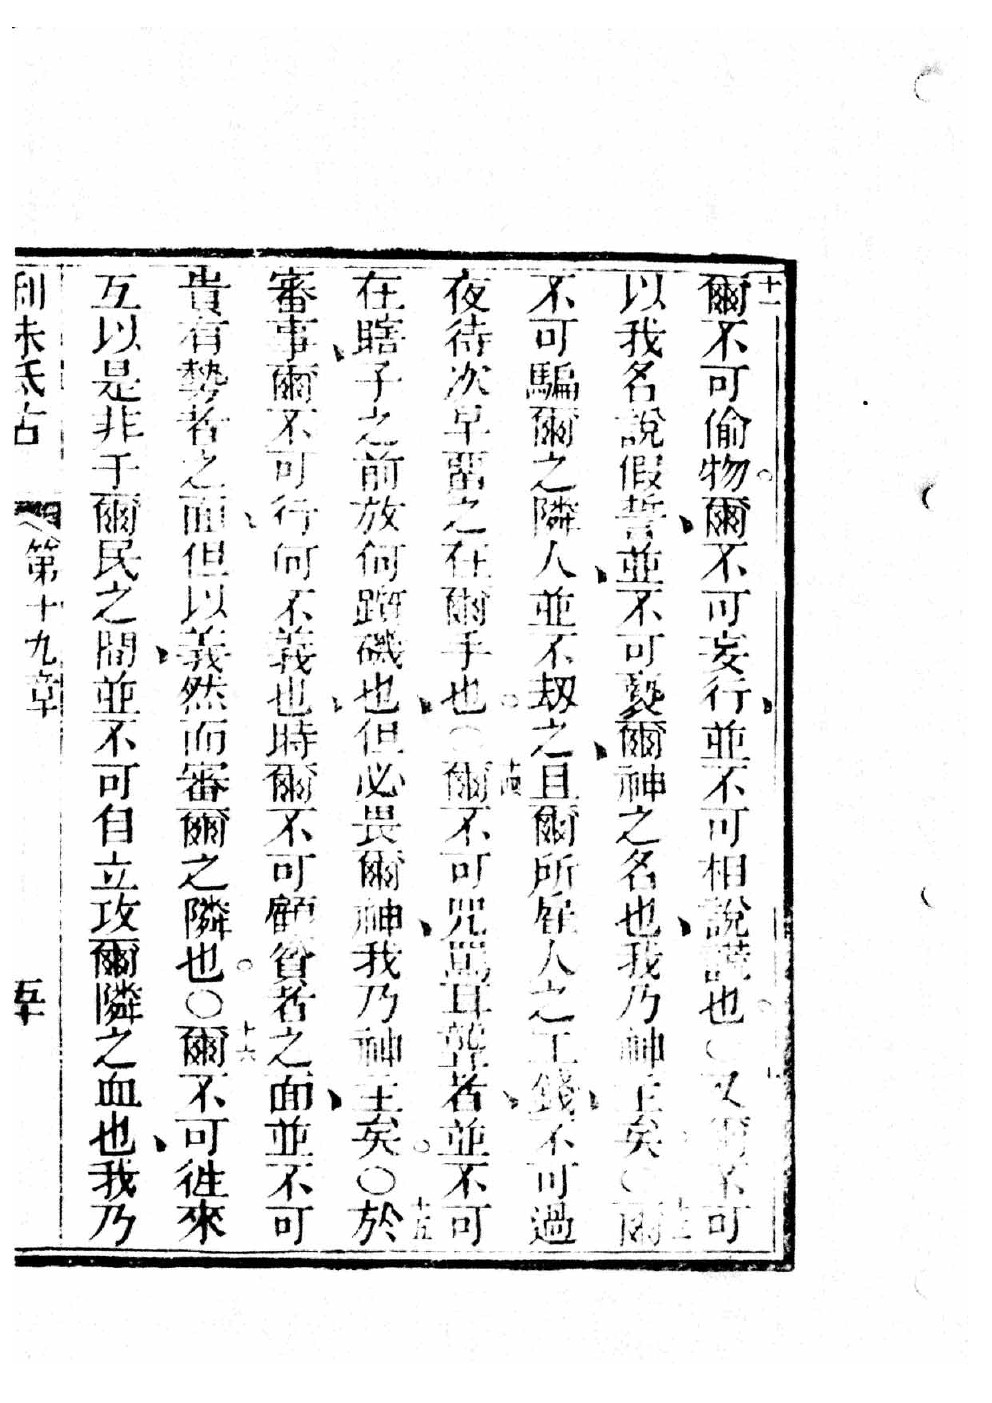 十一
爾不可偷物爾不可妄行並不可相說謊也〇又爾不可
以我名說假誓並不可褻爾神之名也我乃神主矣〇爾
十三
不可騙爾之隣人並不刼之且爾所雇人之工錢不可過
夜待次早留之在爾手也〇爾不可咒罵耳聾者並不可
十四
在瞎子之前放何躓磯也但必畏爾神我乃神主矣〇於
十五
審事爾不可行何不義也時爾不可顧貧者之面並不可
貴有勢者之面但以義然而審爾之隣也〇爾不可徃來
十六
互以是非于爾民之間並不可自立攻爾隣之血也我乃
利未氐古 第十九章 五十